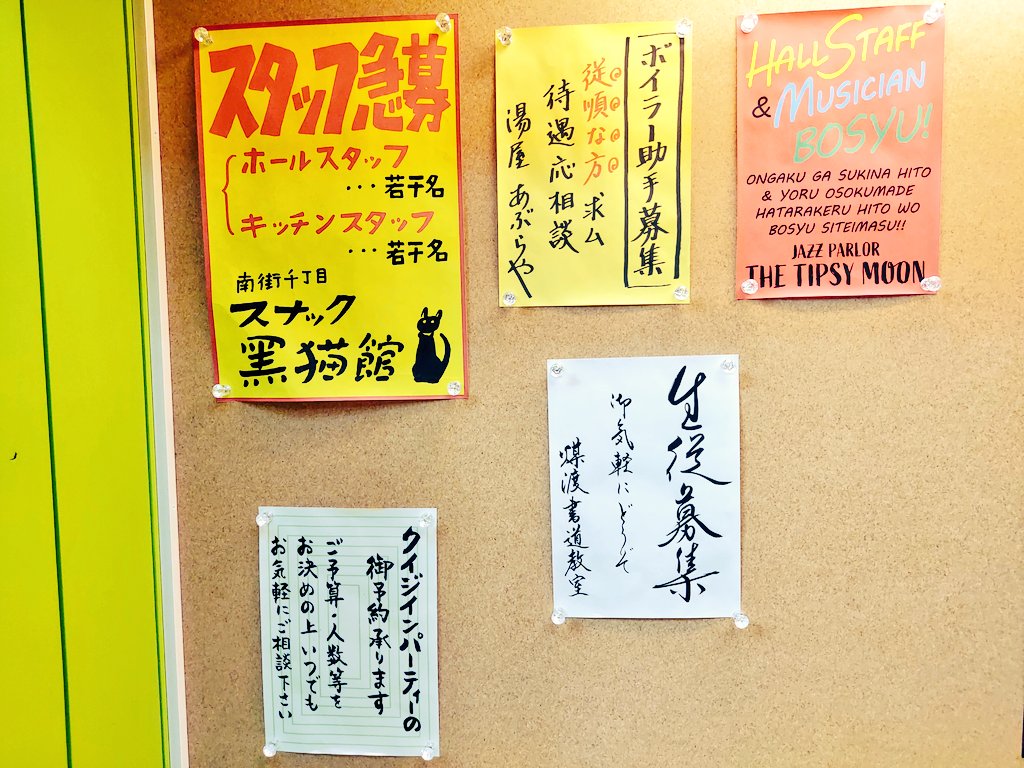 スタッフ急募
ホールスタッフ
・・・若干名
キッチンスタッフ
・・・若干名
南街千丁目
スナック
黒猫館
ボイラー助手募集
従順な方求ム
待遇応相談
湯屋 あぶらや
HALL STAFF
& MUSICIAN
BOSYU!
ONGAKU GA SUKINA HITO
& YORU OSOKUMADE
HATARAKERU HITO WO
BOSYU SITEIMASU!!
JAZZ PARLOR
THE TIPSY MOON
生徒募集
御気軽にどうぞ
煤渡書道教室
クイジインパーティーの
御予約承ります
ご予算・人数等を
お決めの上いつでも
お気軽にご相談下さい